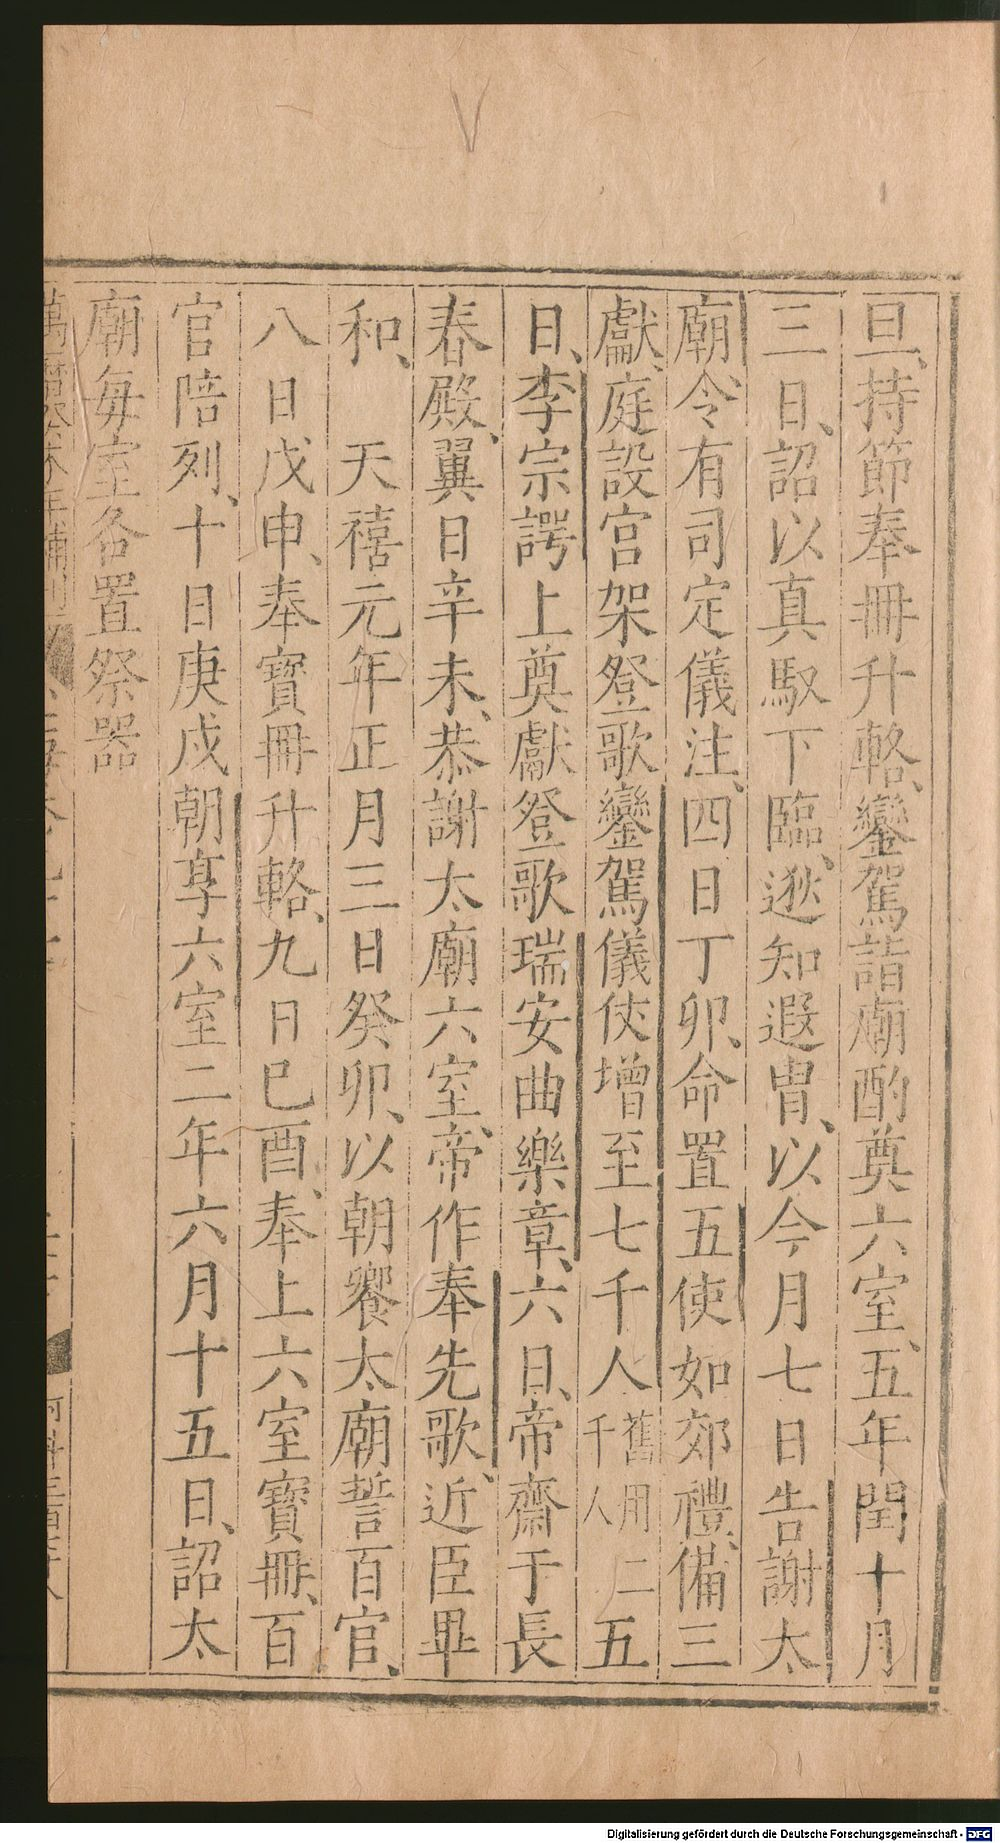 旦、持節奉冊升輅、鑾駕詣廟酌奠六室、五年閏十月
三日、詔以真馭下臨、逖知遐冑、以今月七日告謝太
廟、令有司定儀注、四日丁卯、命置五使如郊禮、備三
獻、庭設宮架登歌鑾駕儀使增至七千人舊用二千人五
日、李宗諤上奠獻登歌瑞安曲樂章、六日、帝齋于長
春殿、翼日辛未、恭謝太廟六室、帝作奉先歌、近臣畢
和、　天禧元年正月三日癸卯、以朝饗太廟誓百官、
八日戊申、奉寶冊升輅、九日巳酉、奉上六室寶冊、百
官陪列、十日庚戌朝享六室二年六月十五日、詔太
廟每室各置祭器
Digitalisierung gefördert durch die Deutsche Forschungsgemeinschaft - DFG